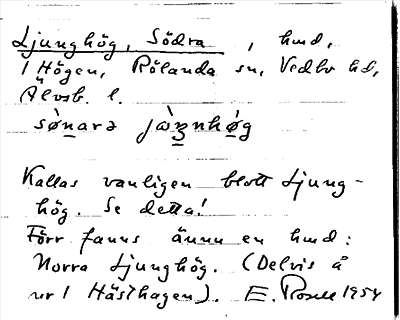 Ljunghög, Södra, hmd,
1 Högen, Rölanda sn, Vedbo hd,
Älvsb. l.
sö̀nara jàŋnhø̀g
Kallas vanligen blott Ljung-
hög. Se detta!
Förr fanns ännu en hmd:
Norra Ljunghög. (Delvis å
nr 1 Hästhagen). E. Rosell 1954